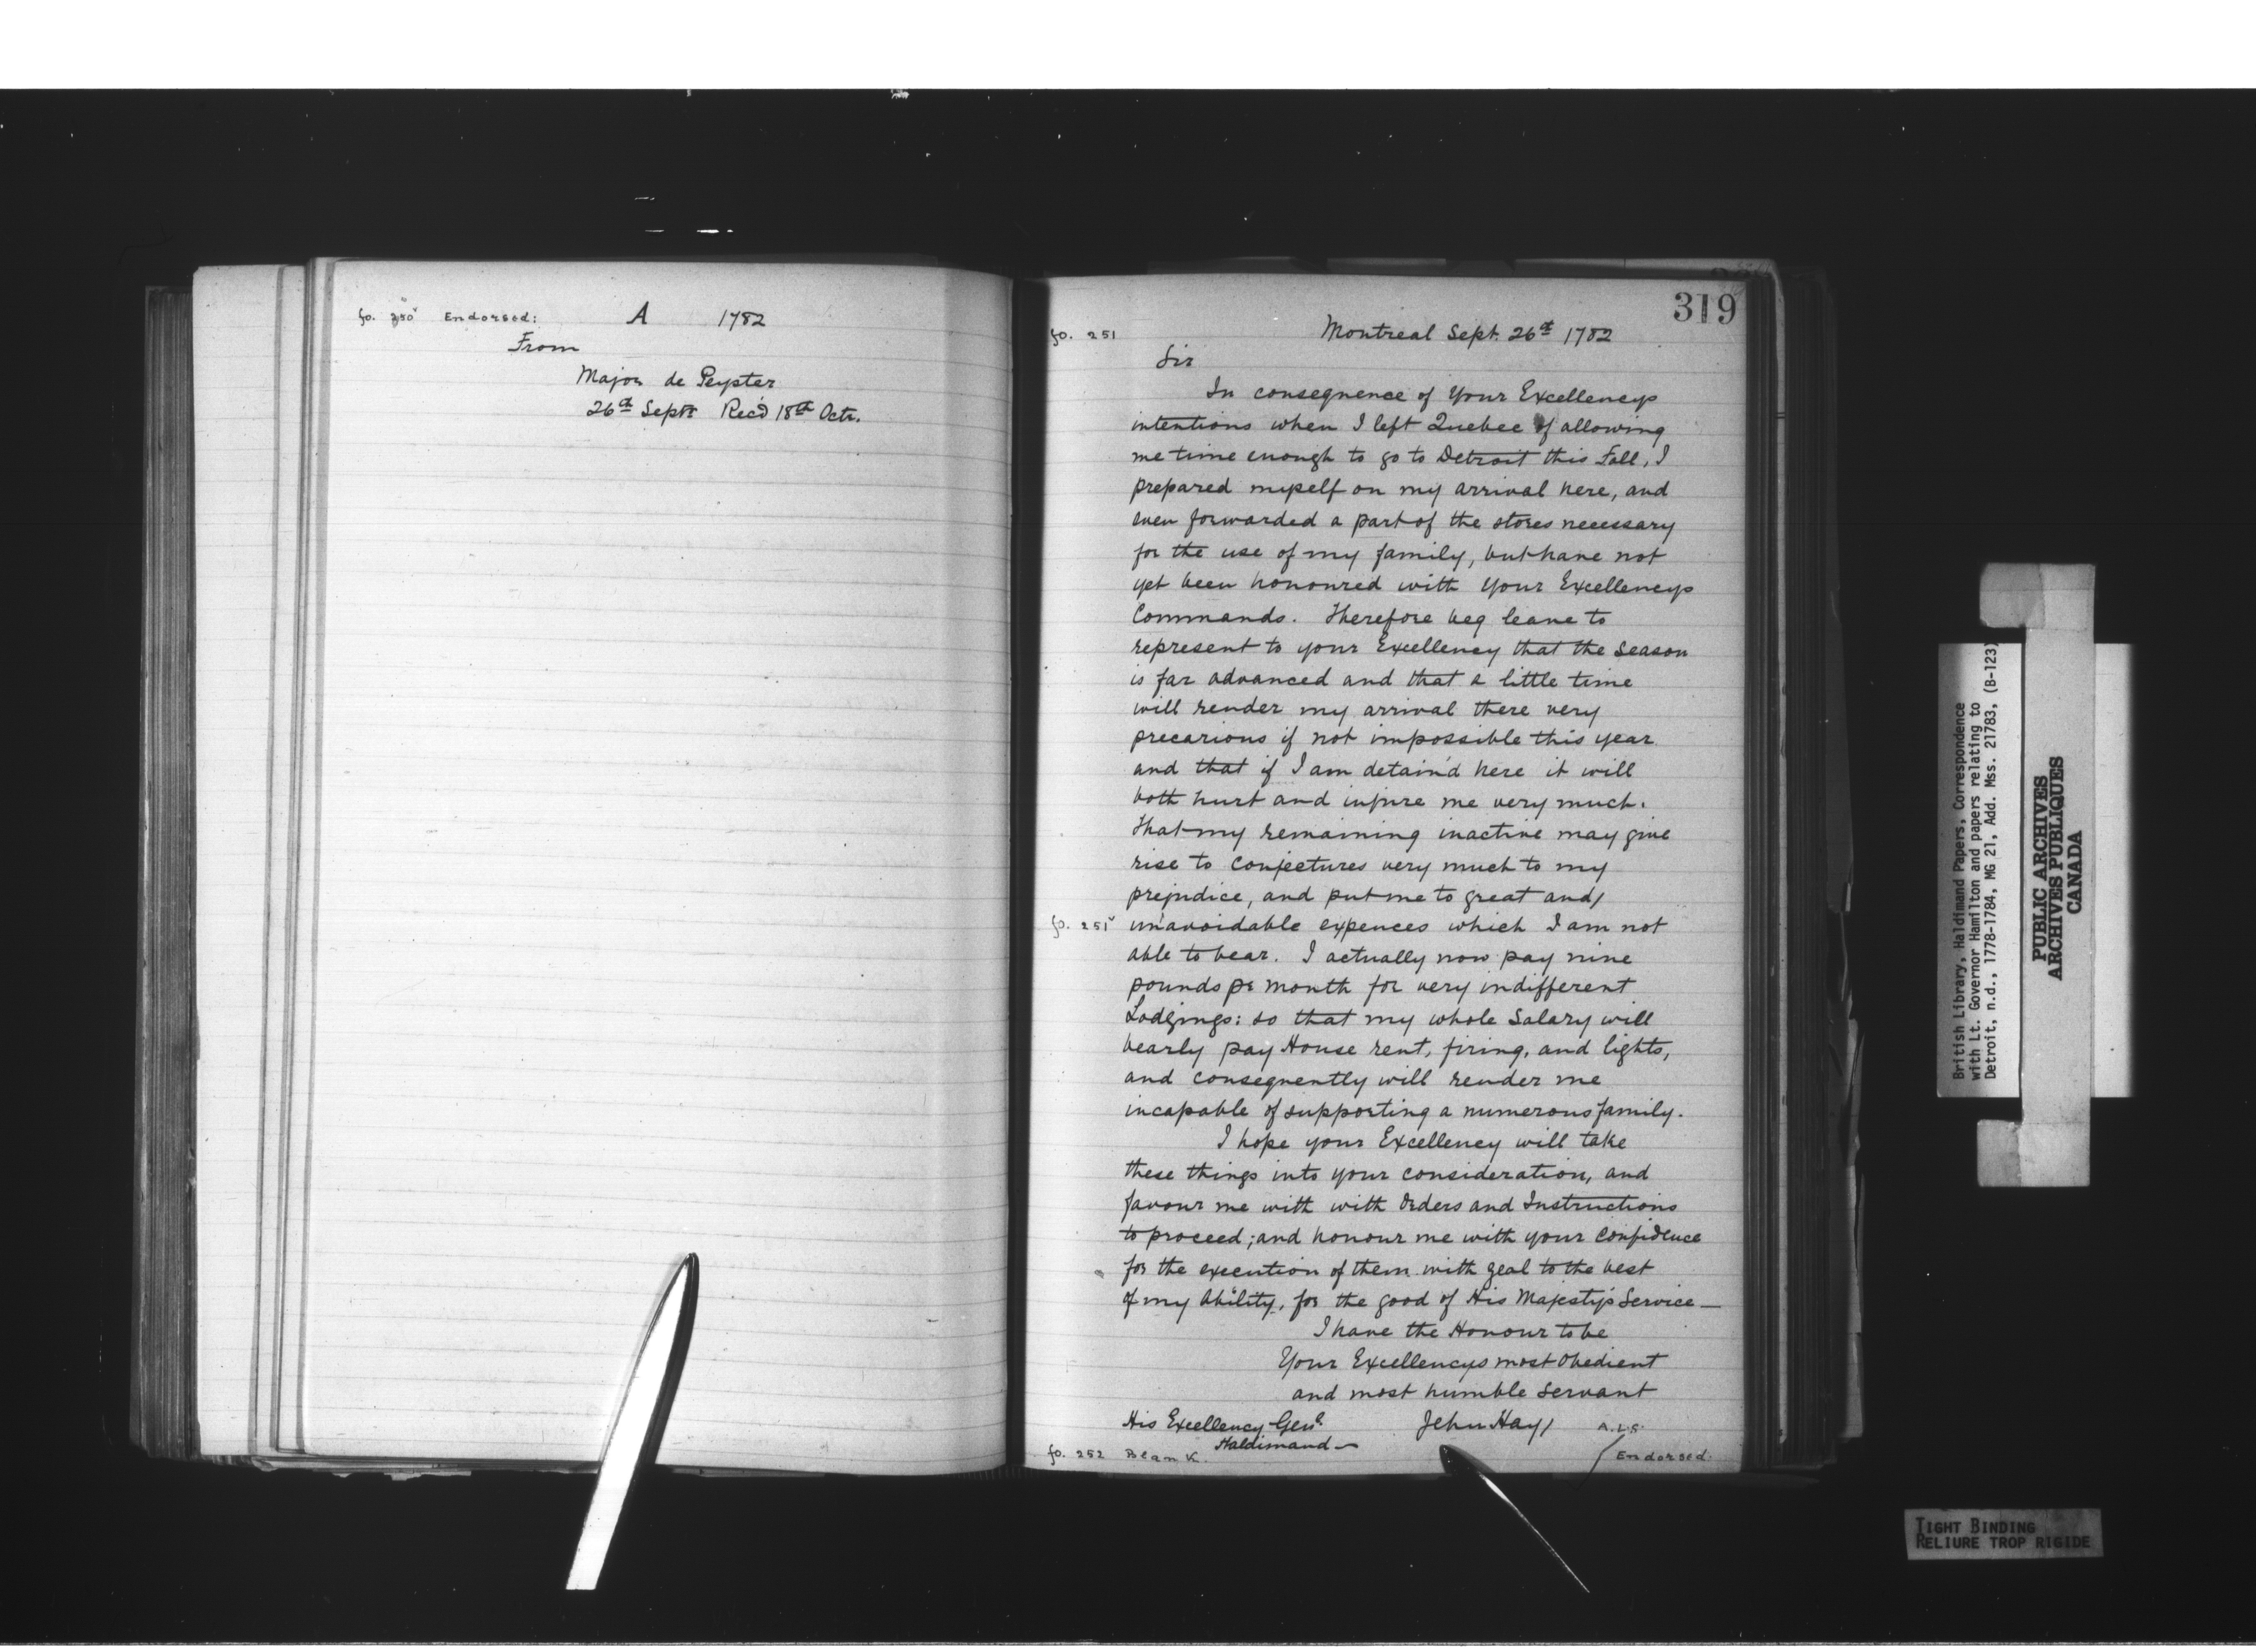 fo. 250v Endorsed: A 1782
From
Major de Peyster
26th Septr Rec'd 18th Octr.
319
fo. 251
Montreal Sept. 26th 1782
Sir
In consequence of Your Excellencys
intentions when I left Quebec of allowing
me time enough to go to Detroit this Fall, I
prepared myself on my arrival here, and
even forwarded a part of the stores necessary
for the use of my family, but have not
yet been honoured with Your Excellencys
Commands. Therefore beg leave to
represent to your Excellency that the Season
is far advanced and that a little time
will render my arrival there very
precarious if not impossible this year
and that if I am detain'd here it will
both hurt and injure me very much.
That my remaining inactive may give
rise to Conjectures very much to my
prejudice, and put me to great and/
fo. 251v unavoidable expences which I am not
able to bear. I actually now pay nine
pounds pr month for very indifferent
Lodgings: so that my whole Salary will
bearly pay House rent, firing, and lights,
and consequently will render me
incapable of supporting a numerous family.
I hope your Excellency will take
these things into your consideration, and
favour me with with Orders and Instructions
to proceed; and honour me with your Confidence
for the execution of them with zeal to the best
of my Ability, for the good of His Majesty's Service —
I have the Honour to be
Your Excellencys most Obedient
and most humble Servant
His Excellency Genl. Jehu Hay/ A.L.S.
Haldimand —
fo. 252 Blank. Endorsed.
British Library, Haldimand Papers, Correspondence
with Lt. Governor Hamilton and papers relating to
Detroit, n.d., 1778-1784, MG 21, Add. Mss. 21783, (B-123)
PUBLIC ARCHIVES
ARCHIVES PUBLIQUES
CANADA
TIGHT BINDING
RELIURE TROP RIGIDE